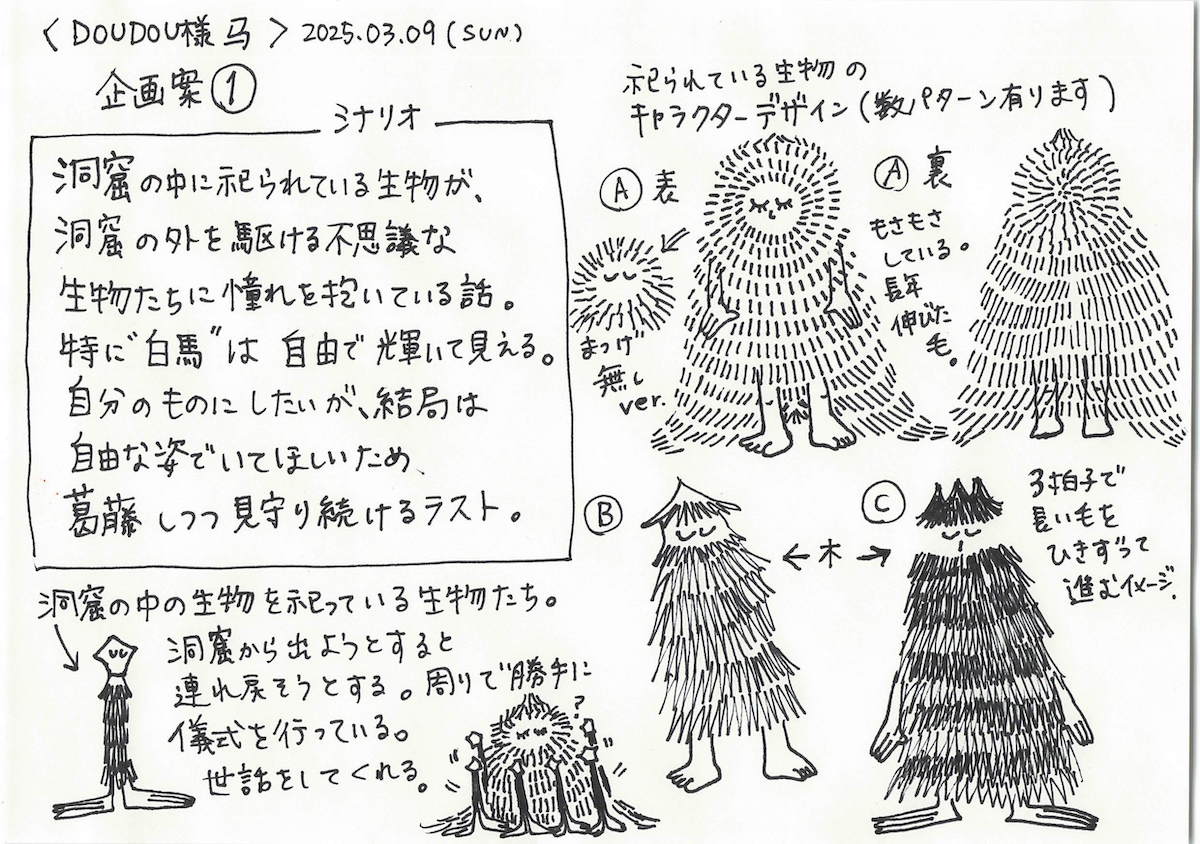 〈DOUDOU様 马〉 2025.03.09 (SUN)
企画案①
シナリオ
洞窟の中に祀られている生物が、
洞窟の外を駆ける不思議な
生物たちに憧れを抱いている話。
特に"白馬"は 自由で輝いて見える。
自分のものにしたいが、結局は
自由な姿でいてほしいため、
葛藤しつつ見守り続けるラスト。
祀られている生物の
キャラクターデザイン(数パターン有ります)
Ⓐ 表
まつげ
無し
ver.
Ⓐ 裏
もさもさ
している。
長年
伸びた
毛。
Ⓑ
←木→
Ⓒ
3拍子で
長い毛を
ひきずって
進むイメージ。
洞窟の中の生物を祀っている生物たち。
洞窟から出ようとすると
連れ戻そうとする。周りで勝手に
儀式を行っている。
世話をしてくれる。
?